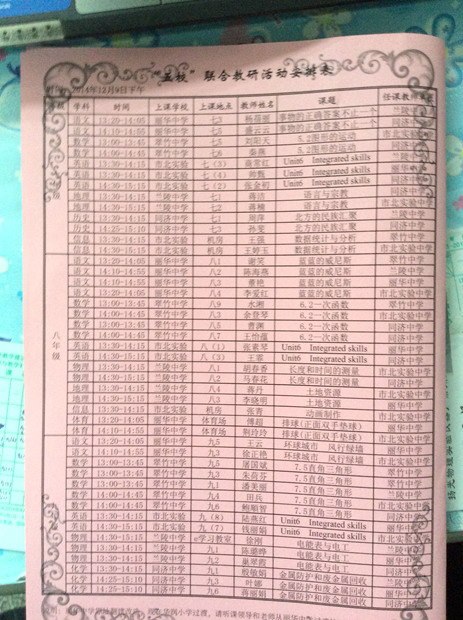 "五校"联合教研活动安排表
时间：2014年12月9日下午
学科 时间 上课学校 上课地点 教师姓名 课题 任课教师
语文 13:20-14:05 丽华中学 七3 杨蓓蕾 事物的正确答案不止一个 兰陵中学
语文 14:10-14:55 丽华中学 七5 盛云云 事物的正确答案不止一个 同济中学
数学 13:00-13:45 翠竹中学 七5 刘阳天 5.2图形的运动 市北实验
数学 14:00-14:45 翠竹中学 七6 秦燕 5.2图形的运动 兰陵中学
英语 13:30-14:15 市北实验 七（3） 高常红 Unit6 Integrated skills
英语 13:30-14:15 市北实验 七（4） 帅甄 Unit6 Integrated skills 丽华中学
英语 14:30-15:15 市北实验 七（2） 张金初 Unit6 Integrated skills 同济中学
地理 13:30-14:15 兰陵中学 七1 蒋洁 语言与宗教 同济中学
地理 14:30-15:15 兰陵中学 七2 蒋楠 语言与宗教 市北实验中学
历史 13:30-14:15 同济中学 七1 周萍 北方的民族汇聚 兰陵中学
历史 14:25-15:10 同济中学 七3 孙斐 北方的民族汇聚 同济中学
信息 13:30-14:15 市北实验 机房 王强 数据统计与分析 翠竹中学
信息 14:30-15:15 市北实验 机房 王婷玉 数据统计与分析 市北实验中学
八年级
语文 13:20-14:05 丽华中学 八1 谢笑 蓝蓝的威尼斯 翠竹中学
语文 14:10-14:55 丽华中学 八2 陈海燕 蓝蓝的威尼斯 兰陵中学
语文 14:10-14:55 丽华中学 八3 董艳 蓝蓝的威尼斯 丽华中学
语文 13:20-14:05 丽华中学 八4 李爱红 蓝蓝的威尼斯 市北实验中学
数学 13:00-13:45 翠竹中学 八9 水湘 6.2一次函数 翠竹中学
数学 13:00-13:45 翠竹中学 八3 余登琴 6.2一次函数 市北实验中学
数学 14:00-14:45 翠竹中学 八5 曹渊 6.2一次函数 同济中学
数学 14:00-14:45 翠竹中学 八7 王怡蕴 6.2一次函数 同济中学
英语 13:30-14:15 市北实验 八（1） 张素琴 Unit6 Integrated skills 丽华中学
英语 14:30-15:15 市北实验 八（3） 王霏 Unit6 Integrated skills 同济中学
物理 13:30-14:15 兰陵中学 八1 胡春香 长度和时间的测量 市北实验中学
物理 14:30-15:15 兰陵中学 八2 马春花 长度和时间的测量 同济中学
地理 13:30-14:15 兰陵中学 八4 蒋丹 土地资源 市北实验中学
地理 14:30-15:15 兰陵中学 八3 李晓明 土地资源 兰陵中学
信息 13:30-14:15 市北实验 机房 张青 动画制作 丽华中学
体育 13:20-14:05 丽华中学 体育场 傅超 排球(正面双手垫球) 市北实验中学
体育 14:10-14:55 丽华中学 体育场 荆玲玲 排球(正面双手垫球) 丽华中学
语文 13:30-14:15 同济中学 九5 王五 环球城市 风行绿墙 丽华中学
语文 14:25-15:10 同济中学 九3 徐正艳 环球城市 风行绿墙 翠竹中学
数学 13:00-13:45 翠竹中学 九5 屠国斌 7.5直角三角形 市北实验中学
数学 13:00-13:45 翠竹中学 九3 朱荷芬 7.5直角三角形 翠竹中学
数学 14:00-14:45 翠竹中学 九1 潘美丽 7.5直角三角形 同济中学
数学 14:00-14:45 翠竹中学 九4 田兵 7.5直角三角形 兰陵中学
数学 14:00-14:45 翠竹中学 九6 鲍顺智 7.5直角三角形 丽华中学
英语 13:30-14:15 市北实验 九（8） 陆燕红 Unit6 Integrated skills 同济中学
英语 14:30-15:15 市北实验 九（7） 钱丽娟 Unit6 Integrated skills 丽华中学
物理 13:30-14:15 兰陵中学 e学习教室 徐刚 电能表与电工 市北实验中学
物理 13:30-14:15 兰陵中学 九1 陈璐烨 电能表与电工 兰陵中学
物理 14:30-15:15 兰陵中学 九2 巢翠霞 电能表与电工 丽华中学
化学 13:30-14:15 同济中学 九1 殷敏娟 金属防护和废金属回收 翠竹中学
化学 14:25-15:10 同济中学 九3 叶娜 金属防护和废金属回收 兰陵中学
化学 14:25-15:10 同济中学 九6 蒋丽娟 金属防护和废金属回收 丽华中学